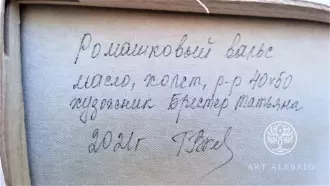 Ромашковый вальс
масло, холст, р-р 40х50
художник Бристер Татьяна
2021г
ART ALBREIO